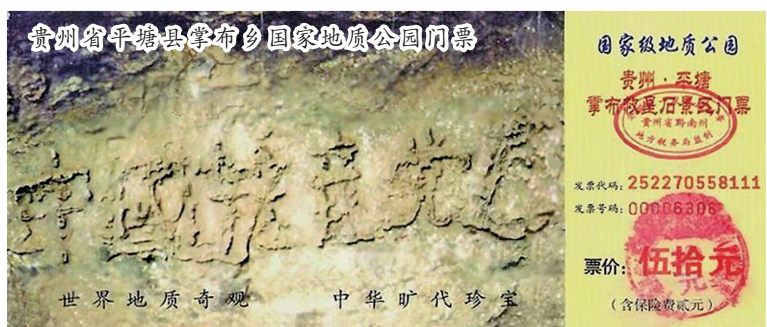 贵州省平塘县掌布乡国家地质公园门票
世界地质奇观 中华旷代珍宝
国家级地质公园
贵州·平塘
掌布救星石景区门票
贵州省黔南州
地方税务局监制
发票代码：252270558111
发票号码：00006306
票价：伍拾元
（含保险费贰元）